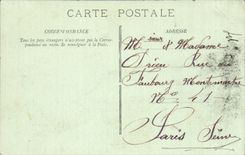 CARTE POSTALE
CORRESPONDANCE
ADRESSE
Tous les pays étrangers n'acceptent pas la Corres-
pondance au recto. Se renseigner à la Poste.
et Madame
Drieu Rue du
Faubourg Montmartre
No 41
Paris Seine